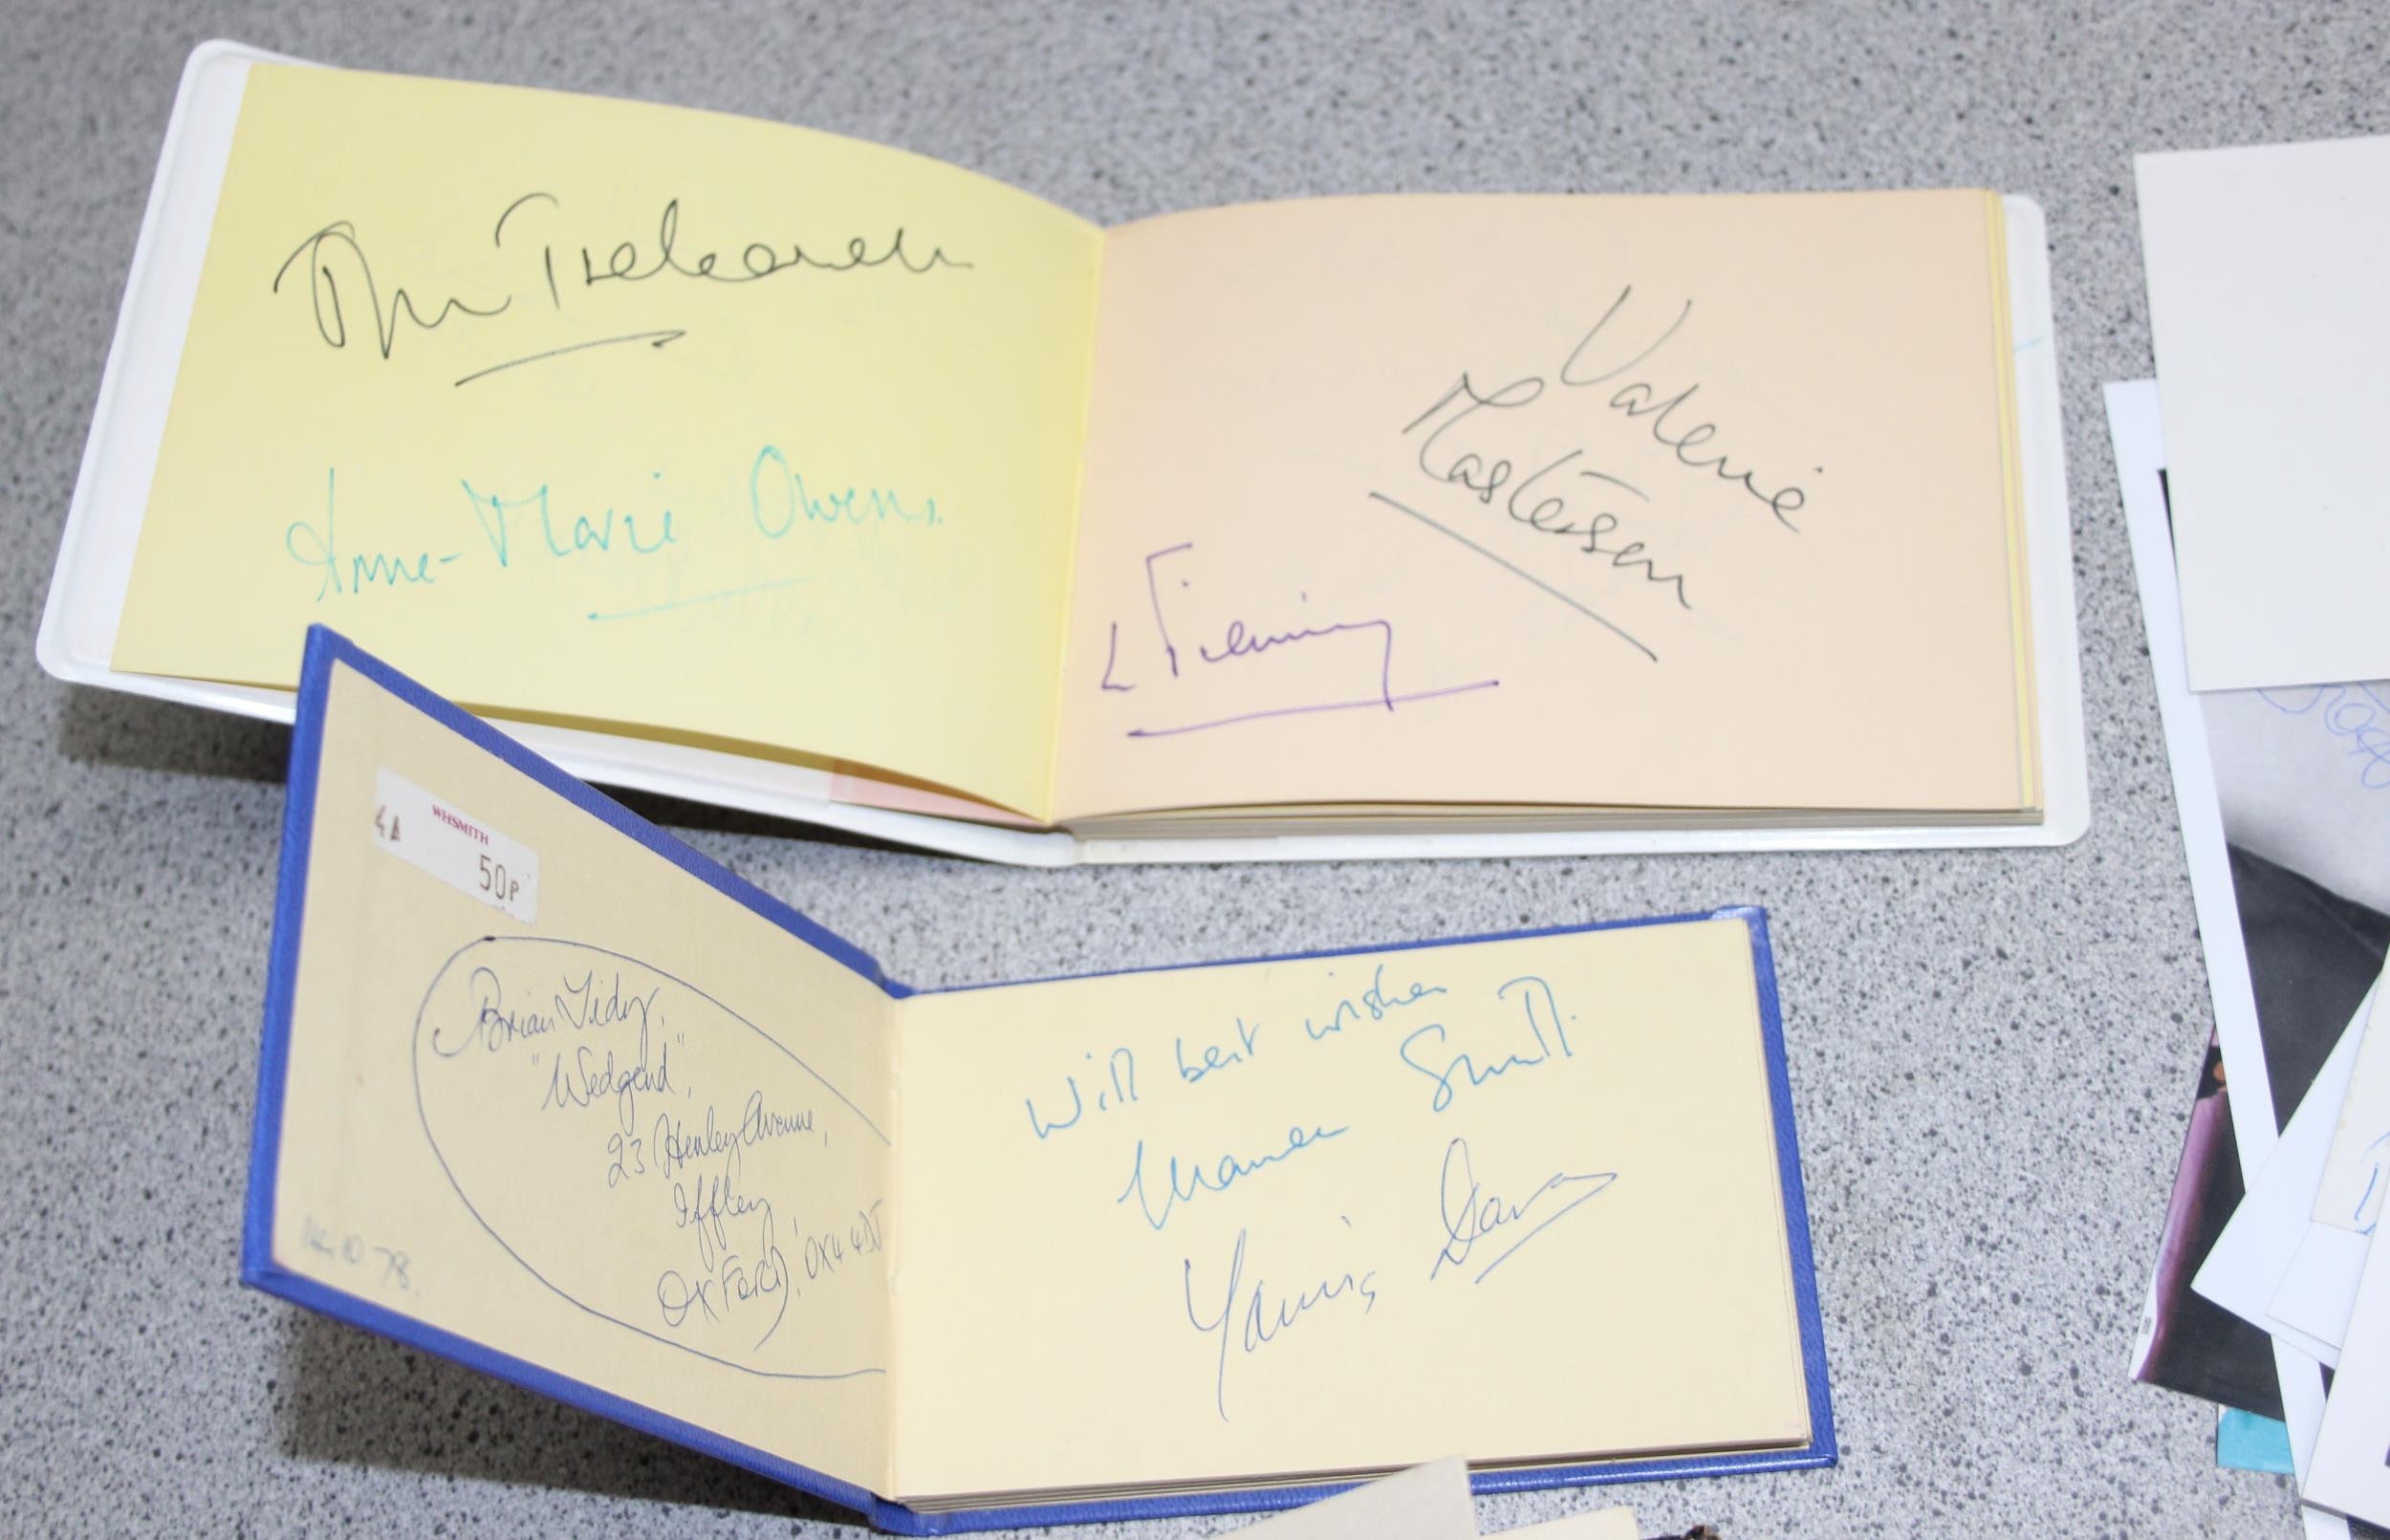 Anne-Marie Owens.
Valerie
Masterson
L Fleming
WHSMITH
4A
50P
Brian Tidy,
"Wedgend",
23 Henley Avenue,
Iffley
OXFORD, OX4 4DJ
14.10.78.
With best wishes
Smith.
Davis